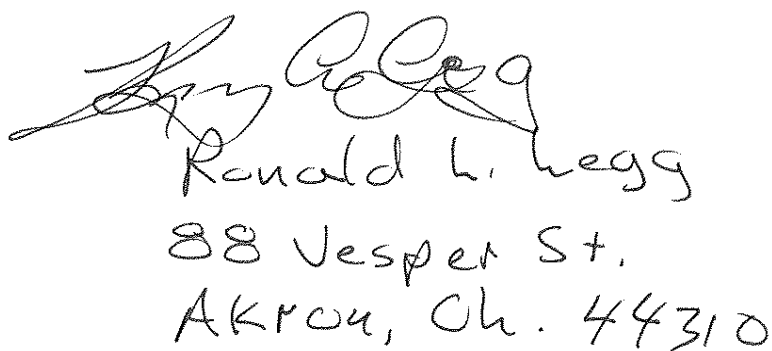 Ronald L. Legg
88 Vesper St.
Akron, Oh. 44310